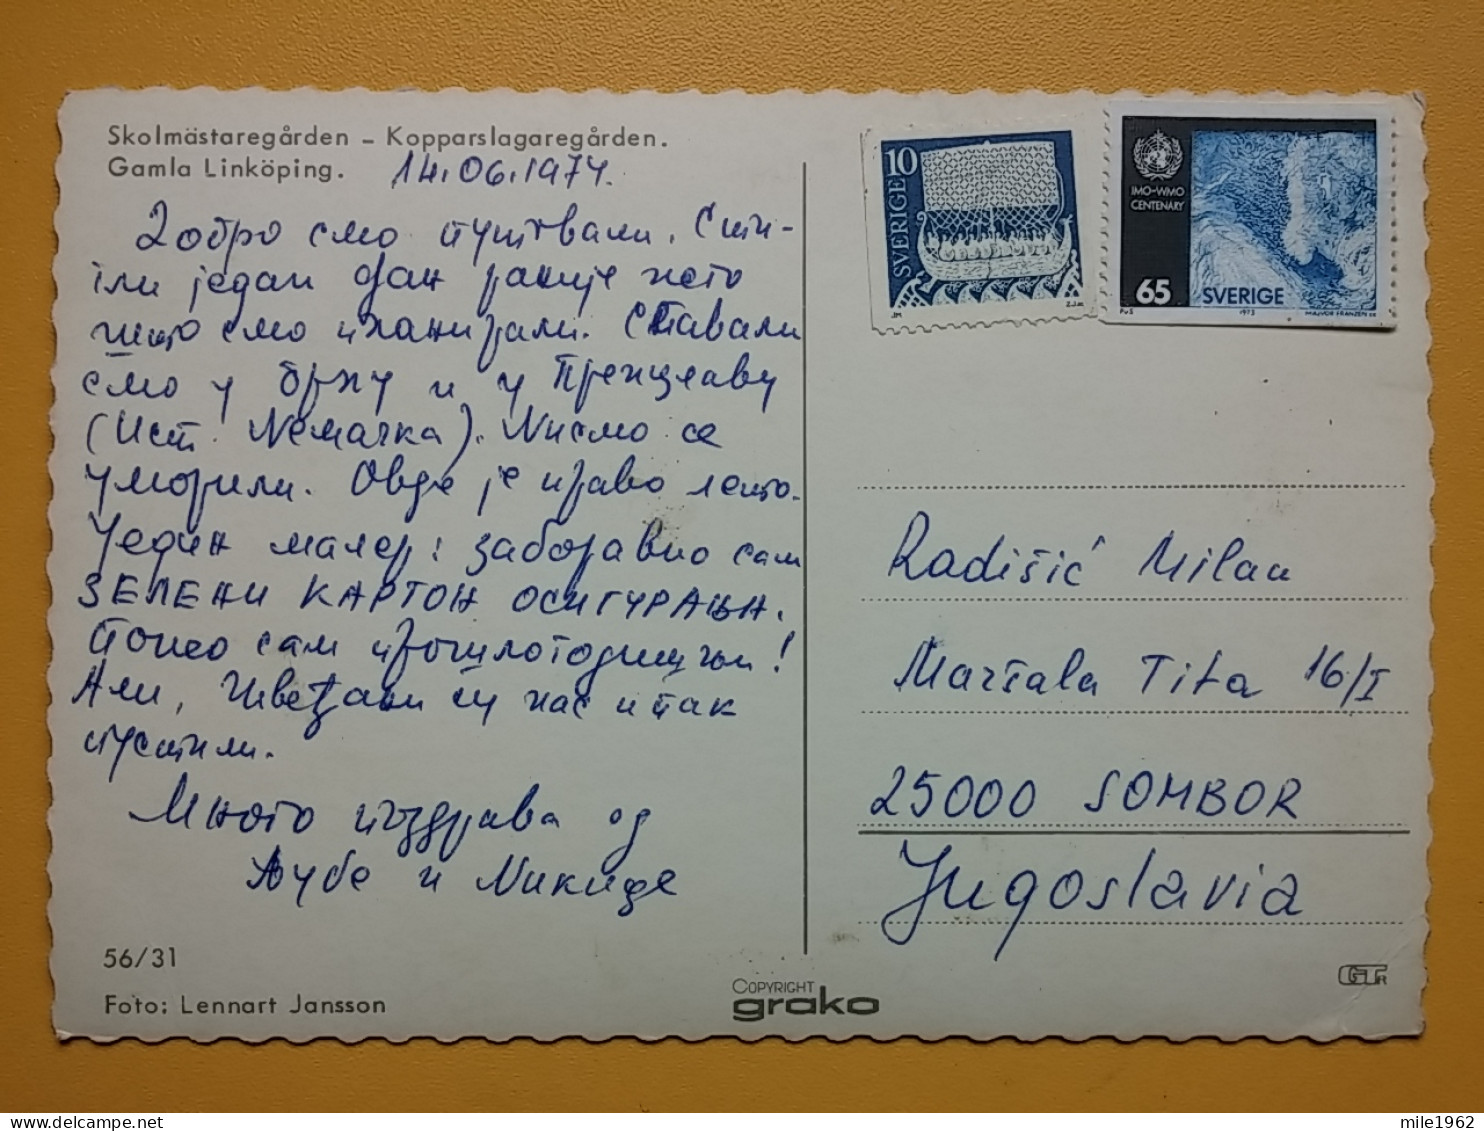 Skolmästaregården – Kopparslagaregården.
Gamla Linköping. 14.06.1974.
Добро смо путовали. Сти-
гли један дан раније него
што смо планирали. Спавали
смо у Брну и у Пренцлаву
(Ист. Немачка). Нисмо се
уморили. Овде је право лето.
Један малер: заборавио сам
ЗЕЛЕНИ КАРТОН ОСИГУРАЊА.
Понео сам прошлогодишњи!
Али, Швеђани су нас и так
пустили.
Много поздрава од
Љубе и Никице
56/31
Foto: Lennart Jansson
COPYRIGHT
grako
10
SVERIGE
JM
Z.J.ss
IMO-WMO
CENTENARY
65
SVERIGE
PvS 1973 MAJVOR FRANZÉN sc
Radišić Milan
Maršala Tita 16/I
25000 SOMBOR
Jugoslavia
mile1962